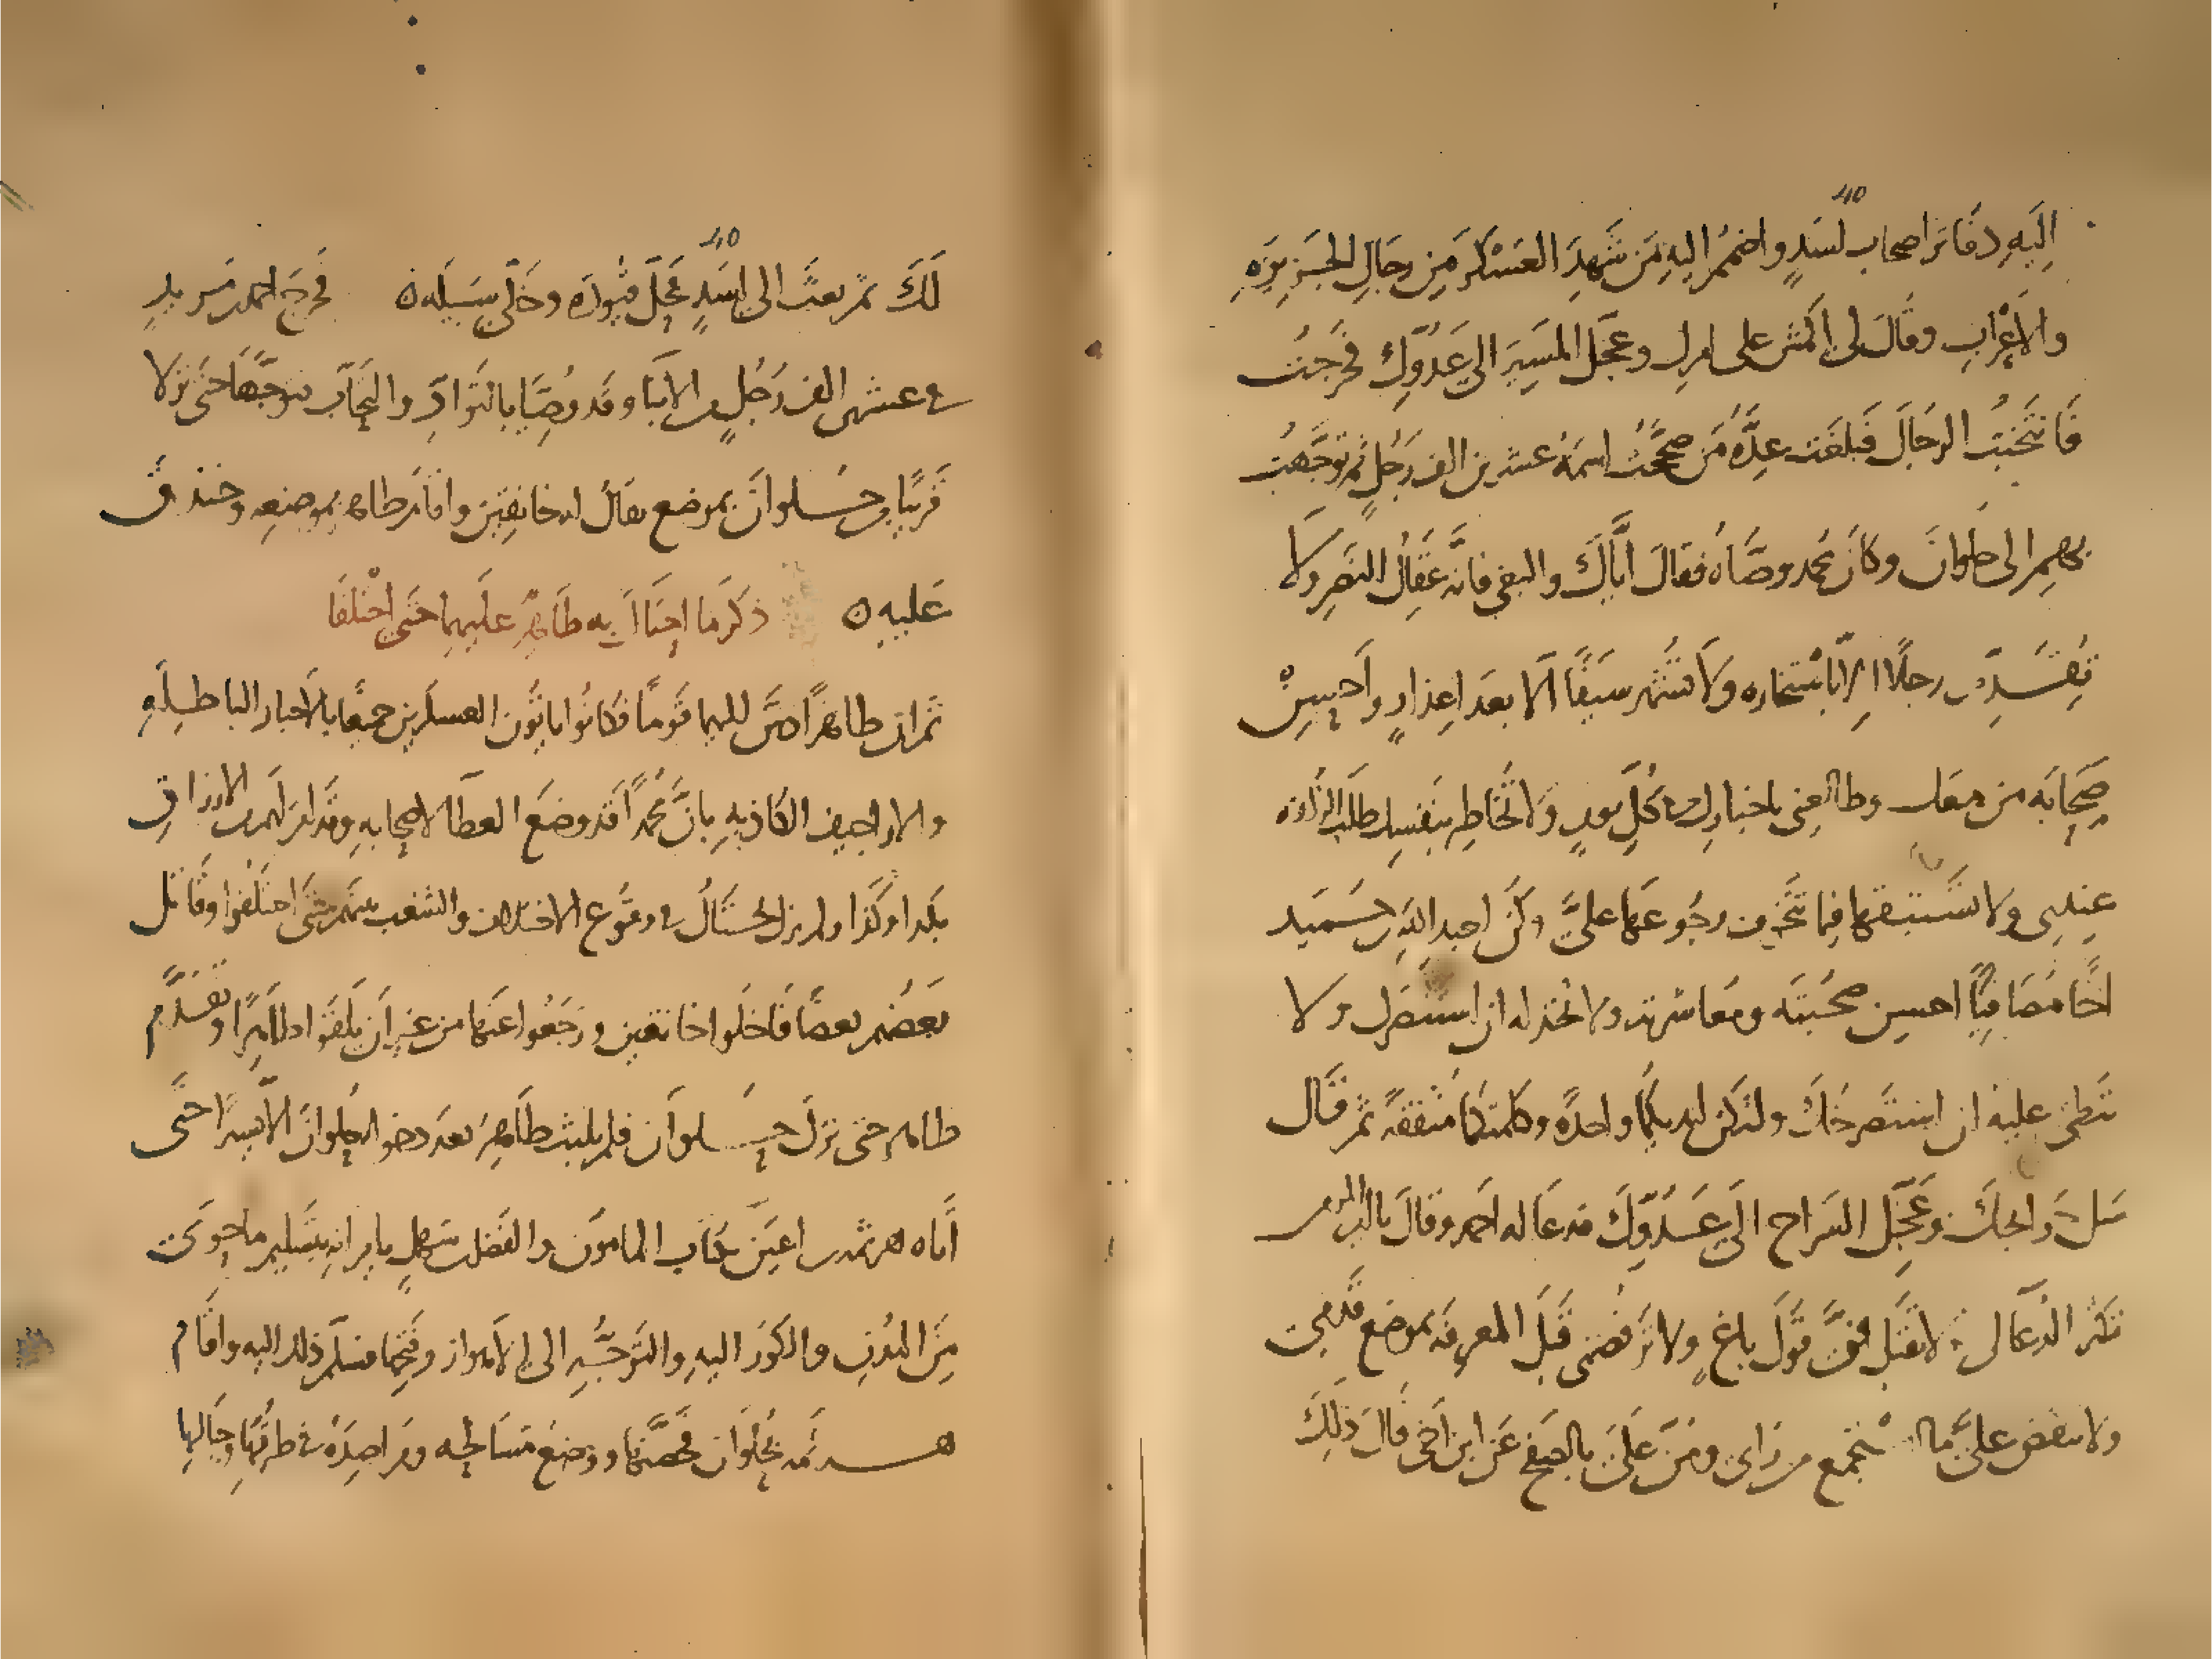 اليه دفاتر اصحاب اسد واضمم اليه من شهد العسكر من رجال الجزيرة
والاعراب وقال لى اكمش على امرك وعجل المسير الى عدوك فخرجت
فانتخبت الرجال فبلغت عدة من صححت اسمه عشرين الف رجل ثم توجهت
بهم الى حلوان وكان محمد وصاه فقال اياك والبغى فانه عقال النصر ولا
تقدم رجلا الا باستخاره ولا تشهر سيفا الا بعد اعذار واحسن
صحابه من معك وطالعنى باخبارك فى كل يوم ولا تخاطر بنفسك طلب الزلفه
عندى ولا تستبقها فيما تتخوف رجوعها على وكن احمد لعبد الله بن حميد
اخا مصافيا احسن صحبته ومعاشرته ولا تخذله ان استنصرك ولا
تبطئ عليه ان استصرخك ولتكن ايديكما واحدة وكلمتكما متفقة ثم قال
سل حوائجك وعجل السراح الى عدوك فدعا له احمد وقال يا امير المومنين
تكثر الدعا لى ولا تقبل فى قول باغ ولا ترفضنى قبل المعرفة بموضع قدمى
ولا تنقض على ما استجمع من راى ومن على بالصفح عن ابن اخى قال ذلك
لك ثم بعث الى اسد فحل قيوده وخلى سبيله ه فخرج احمد بن مزيد
فى عشرين الف رجل من الابنا وقد وصيا بالتواد والتحاب فتوجها حتى نزلا
قريبا من حلوان بموضع يقال له خانقين واقام طاهر بموضعه وخندق
عليه ه ذكر ما احتال به طاهر عليهما حتى اختلفا
ثم ان طاهرا دس اليهما قوما فكانوا ياتون العسكرين جميعا بالاخبار الباطلة
والاراجيف الكاذبة بان محمدا قد وضع العطا لاصحابه وقد امر لهم من الارزاق
بكذا وكذا ولم يزل يحتال فى وقوع الاختلاف والشغب بينهم حتى اختلفوا وقاتل
بعضهم بعضا فاخلوا خانقين ورجعوا عنها من غير ان يلقوا طاهرا وتقدم
طاهر حتى نزل حلوان فلم يلبث طاهر بعد دخول حلوان الا يسيرا حتى
اتاه هرثمة بن اعين بكتاب المامون والفضل بن سهل يامرانه بتسليم ما حوى
من المدن والكور اليه والتوجه الى الاهواز وفتحها فسلم ذلك اليه واقام
هرثمه بحلوان فحصنها ووضع مسالحه ومراصده فى طرقها وجبالها